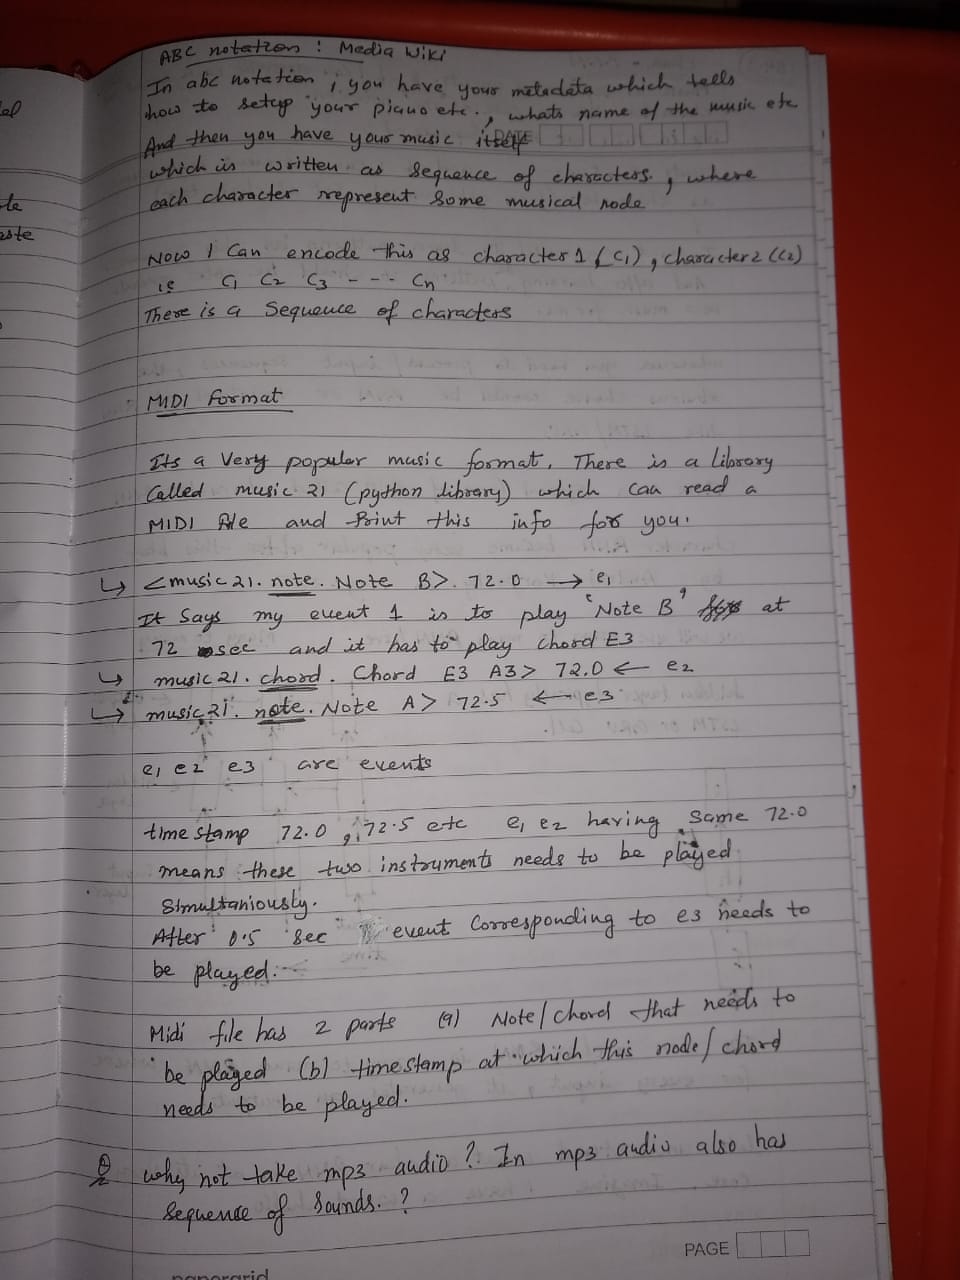 ABC notation : Media Wiki
In abc notation, you have your metadata which tells
how to setup your piano etc., whats name of the music etc
And then you have your music itself
which is written as sequence of characters, where
each character represent some musical node
Now I can encode this as character 1 (C1), character 2 (C2)
ie C1 C2 C3 - - - Cn
There is a sequence of characters
MIDI format
Its a very popular music format. There is a library
called music 21 (python library) which can read a
MIDI file and print this info for you.
↳ <music21.note.Note B> 72.0 → e1
It says my event 1 is to play 'Note B' at
72 sec and it has to play chord E3
↳ music21.chord.Chord E3 A3> 72.0 ← e2
↳ music21.note.Note A> 72.5 ← e3
e1 e2 e3 are events
time stamp 72.0, 72.5 etc e1 e2 having same 72.0
means these two instruments needs to be played
Simultaniously.
After 0.5 sec event corresponding to e3 needs to
be played.
Midi file has 2 parts (a) Note/chord that needs to
be played (b) timestamp at which this node/chord
needs to be played.
Q why not take mp3 audio? In mp3 audio also has
sequence of sounds.?
PAGE